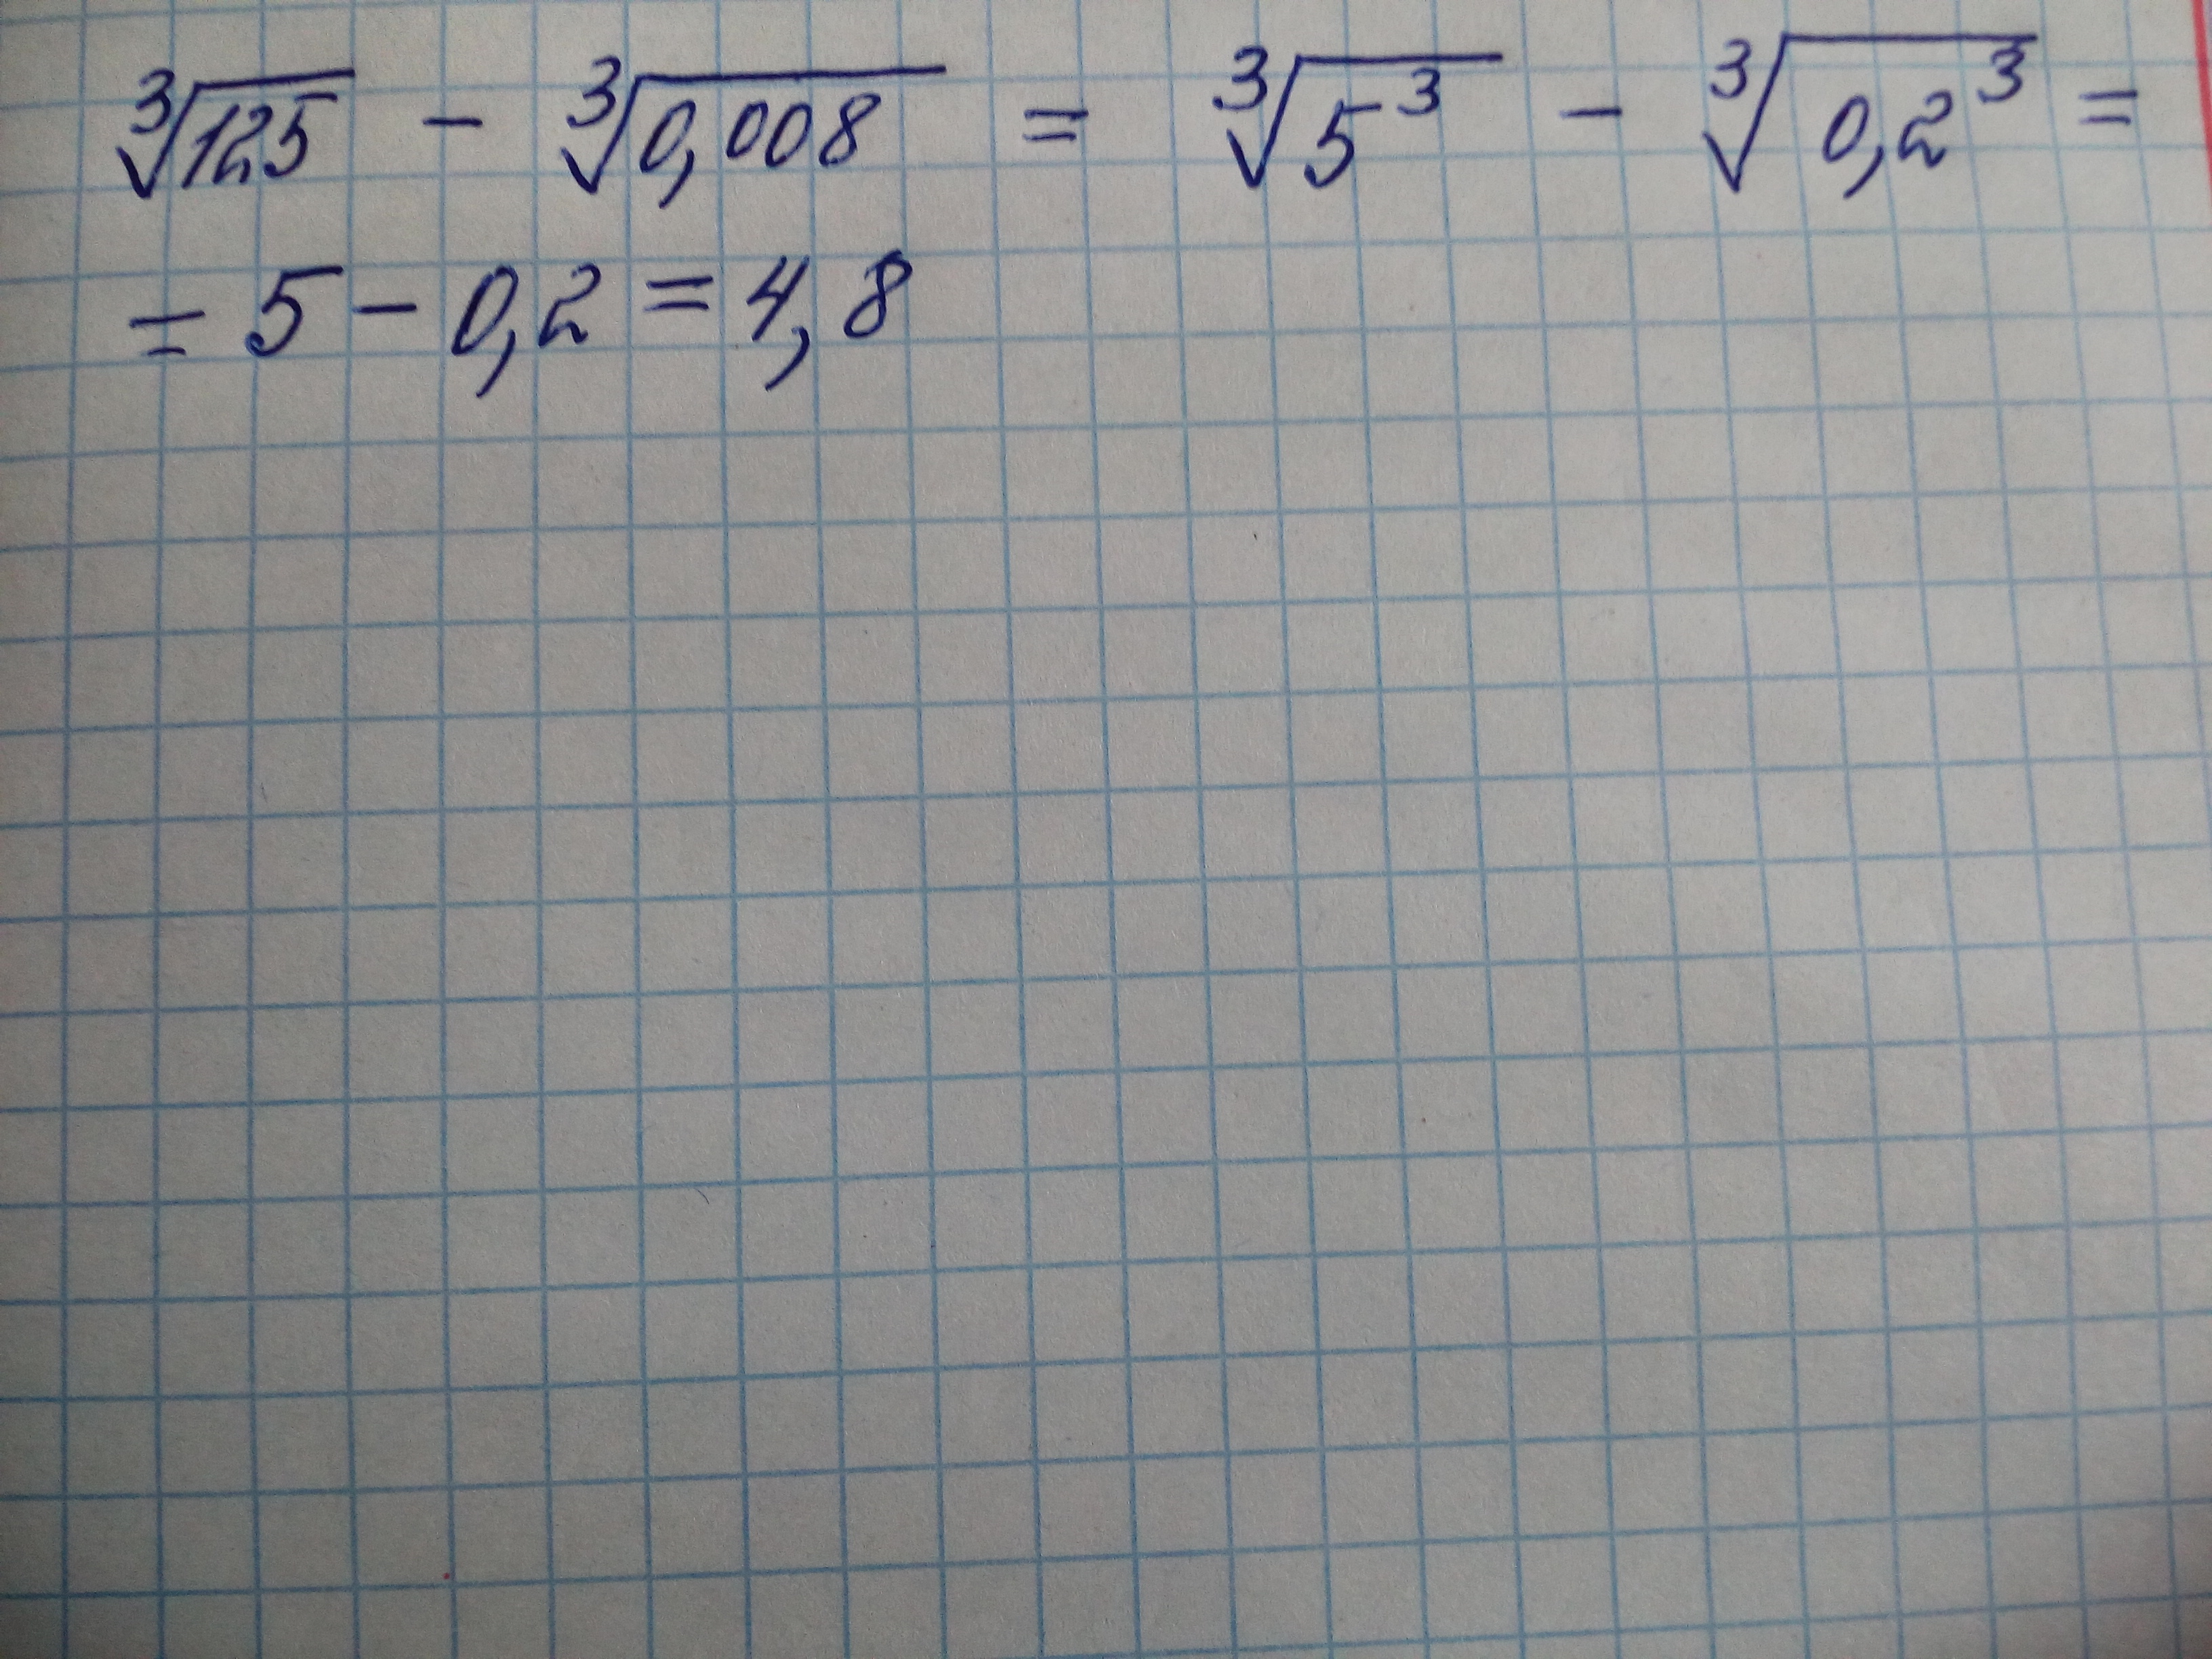 ∛125 - ∛0,008 = ∛5³ - ∛0,2³ =
= 5 - 0,2 = 4,8